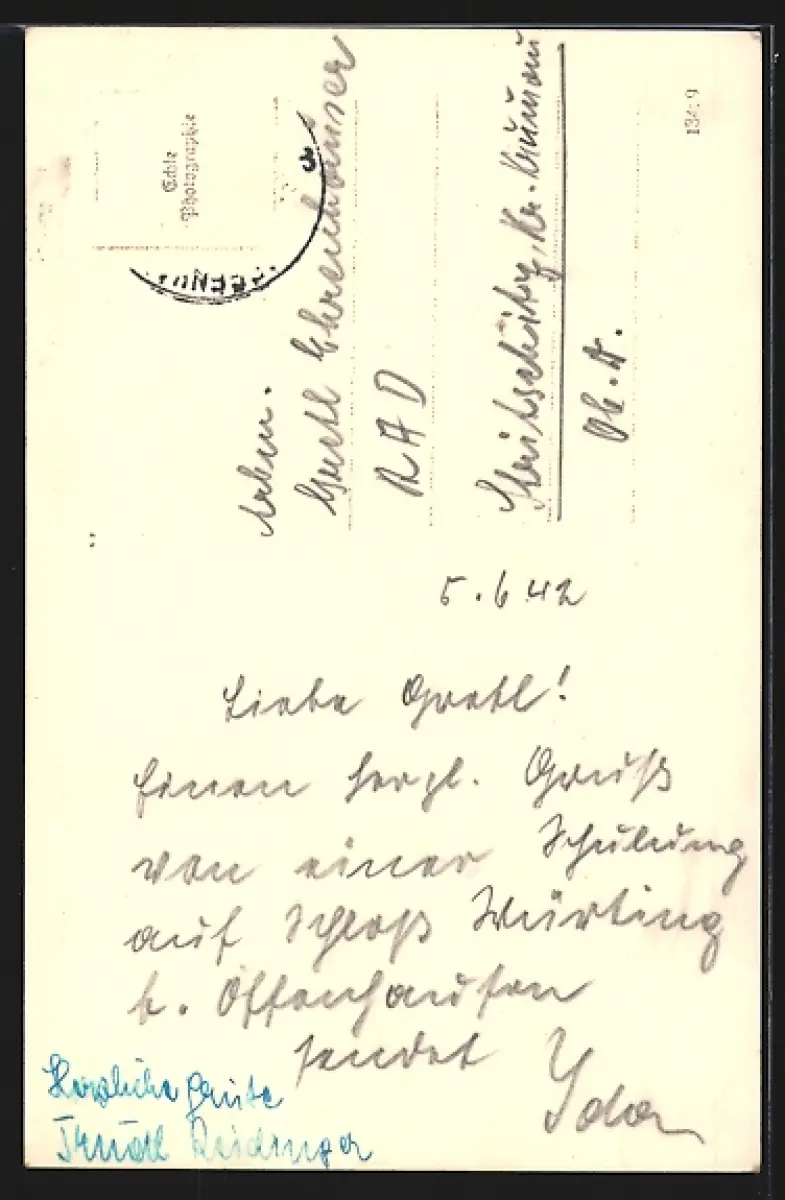 Echte
Photographie
13419
Gretl Ehrenhauser
RAD
Kr. Krumau
Ob. A.
5.6.42
Liebe Gretl!
Einen herzl. Gruß
von einer Schulung
auf Schloß Würting
b. Offenhausen
sendet Ida
Herzliche Grüße
Trudl Reidinger